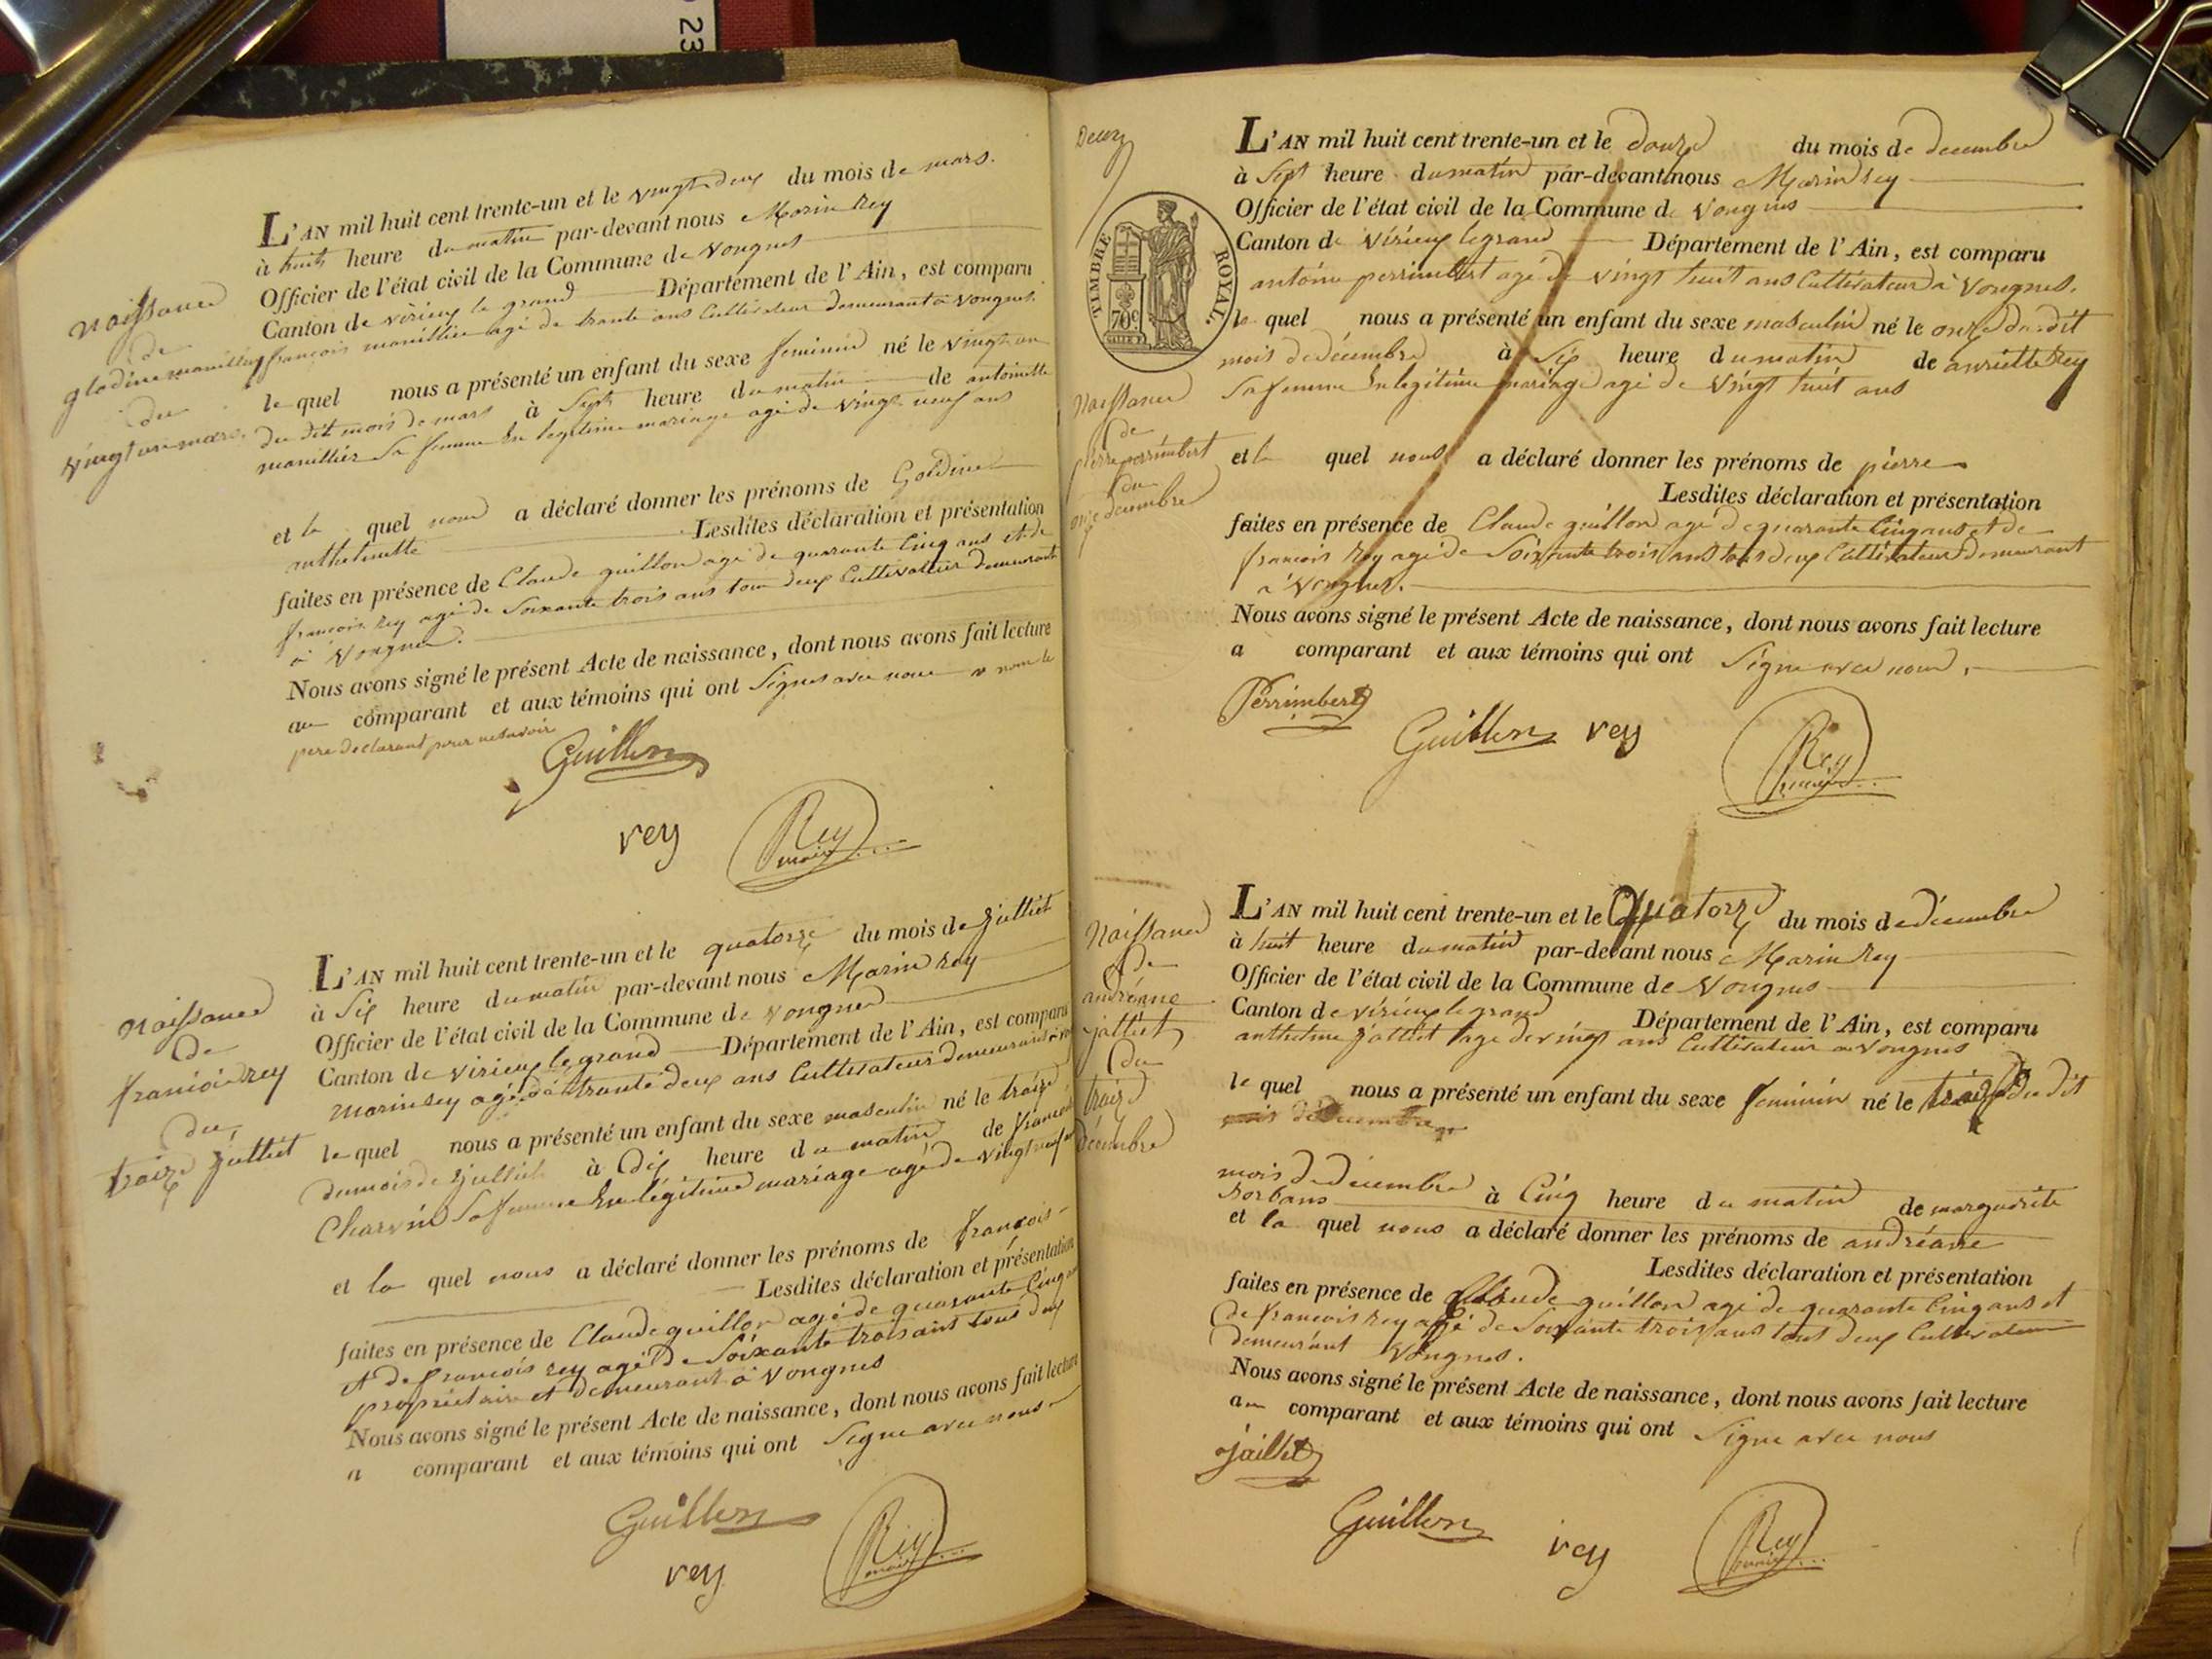 23
L'AN mil huit cent trente-un et le vingt deux du mois de mars.
à huit heure du matin par-devant nous Marin Rey
Officier de l'état civil de la Commune de Vongnes
Canton de virieux le grand Département de l'Ain, est comparu
françois manillier agé de trante ans Cultivateur demeurant à vongnes.
le quel nous a présenté un enfant du sexe feminin né le vingt un
du dit mois de mars à Sept heure du matin de antoinette
manillier Sa femme En legitime mariage agé de vingt neuf ans
et le quel nous a déclaré donner les prénoms de Goldine
anthelmette Lesdites déclaration et présentation
faites en présence de Claude guillon agé de quarante Cinq ans et de
françois Rey agé de Soixante trois ans tous deux Cultivateur demeurant
à Vongnes.
Nous avons signé le présent Acte de naissance, dont nous avons fait lecture
au comparant et aux témoins qui ont Signés avec nous non le
pere declarant pour ne savoir
Guillon
rey
Rey
maire
Naissance
de
glodine manillier
du
vingt un mars.
L'AN mil huit cent trente-un et le quatorze du mois de juilliet
à Six heure du matin par-devant nous Marin Rey
Officier de l'état civil de la Commune de vongnes
Canton de virieux le grand Département de l'Ain, est comparu
Marin Rey agé de trante deux ans Cultivateur demeurant à
le quel nous a présenté un enfant du sexe masculin né le traize
du mois de juilliet à Dix heure du matin de françoise
Charvin Sa femme En légitime mariage agé de vingt neuf ans
et le quel nous a déclaré donner les prénoms de françois
Lesdites déclaration et présentation
faites en présence de Claude guillon agé de quarante Cinq ans
et de françois rey agé de Soixante trois ans tous deux
propriétaire et demeurant à Vongnes
Nous avons signé le présent Acte de naissance, dont nous avons fait lecture
a comparant et aux témoins qui ont Signe avec nous
Guillon
rey
Rey
maire
Naissance
de
françois rey
du
traize juilliet
Deux
TIMBRE ROYAL.
70c
L'AN mil huit cent trente-un et le douze du mois de decembre
à Sept heure du matin par-devant nous Marin Rey
Officier de l'état civil de la Commune de Vongnes
Canton de Virieux le grand Département de l'Ain, est comparu
antoine perrimbert agé de vingt huit ans Cultivateur à Vongnes.
le quel nous a présenté un enfant du sexe masculin né le onze du dit
mois de décembre à Six heure du matin de anriette Rey
Sa femme En legitime mariage agé de Vingt huit ans
et le quel nous a déclaré donner les prénoms de pierre
Lesdites déclaration et présentation
faites en présence de Claude guillon agé de quarante Cinq ans et de
françois Rey agé de Soixante trois ans tous deux Cultivateur demeurant
à Vongnes.
Nous avons signé le présent Acte de naissance, dont nous avons fait lecture
a comparant et aux témoins qui ont Signe avec nous.
Perrimbert
Guillon rey
Rey
maire
Naissance
de
pierre perrimbert
du
onze decembre
L'AN mil huit cent trente-un et le Quatorze du mois de décembre
à huit heure du matin par-devant nous Marin Rey
Officier de l'état civil de la Commune de Vongnes
Canton de virieux le grand Département de l'Ain, est comparu
anthelme jalliet agé de vingt ans Cultivateur à Vongnes
le quel nous a présenté un enfant du sexe feminin né le traize du dit
mois de decembre
mois de décembre à Cinq heure du matin de marguérite
et la quel nous a déclaré donner les prénoms de andréane
Lesdites déclaration et présentation
faites en présence de Claude guillon agé de quarante Cinq ans et
de françois rey agé de Soixante trois ans tous deux Cultivateur
demeurant Vongnes.
Nous avons signé le présent Acte de naissance, dont nous avons fait lecture
au comparant et aux témoins qui ont Signe avec nous
jailliet
Guillon
rey
Rey
maire
Naissance
de
andréane
jalliet
du
traize
décembre